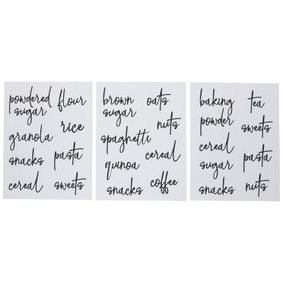 powdered flour
sugar
rice
granola
snacks pasta
cereal sweets
brown oats
sugar
nuts
spaghetti
cereal
quinoa
snacks coffee
baking tea
powder sweets
cereal
sugar pasta
snacks nuts